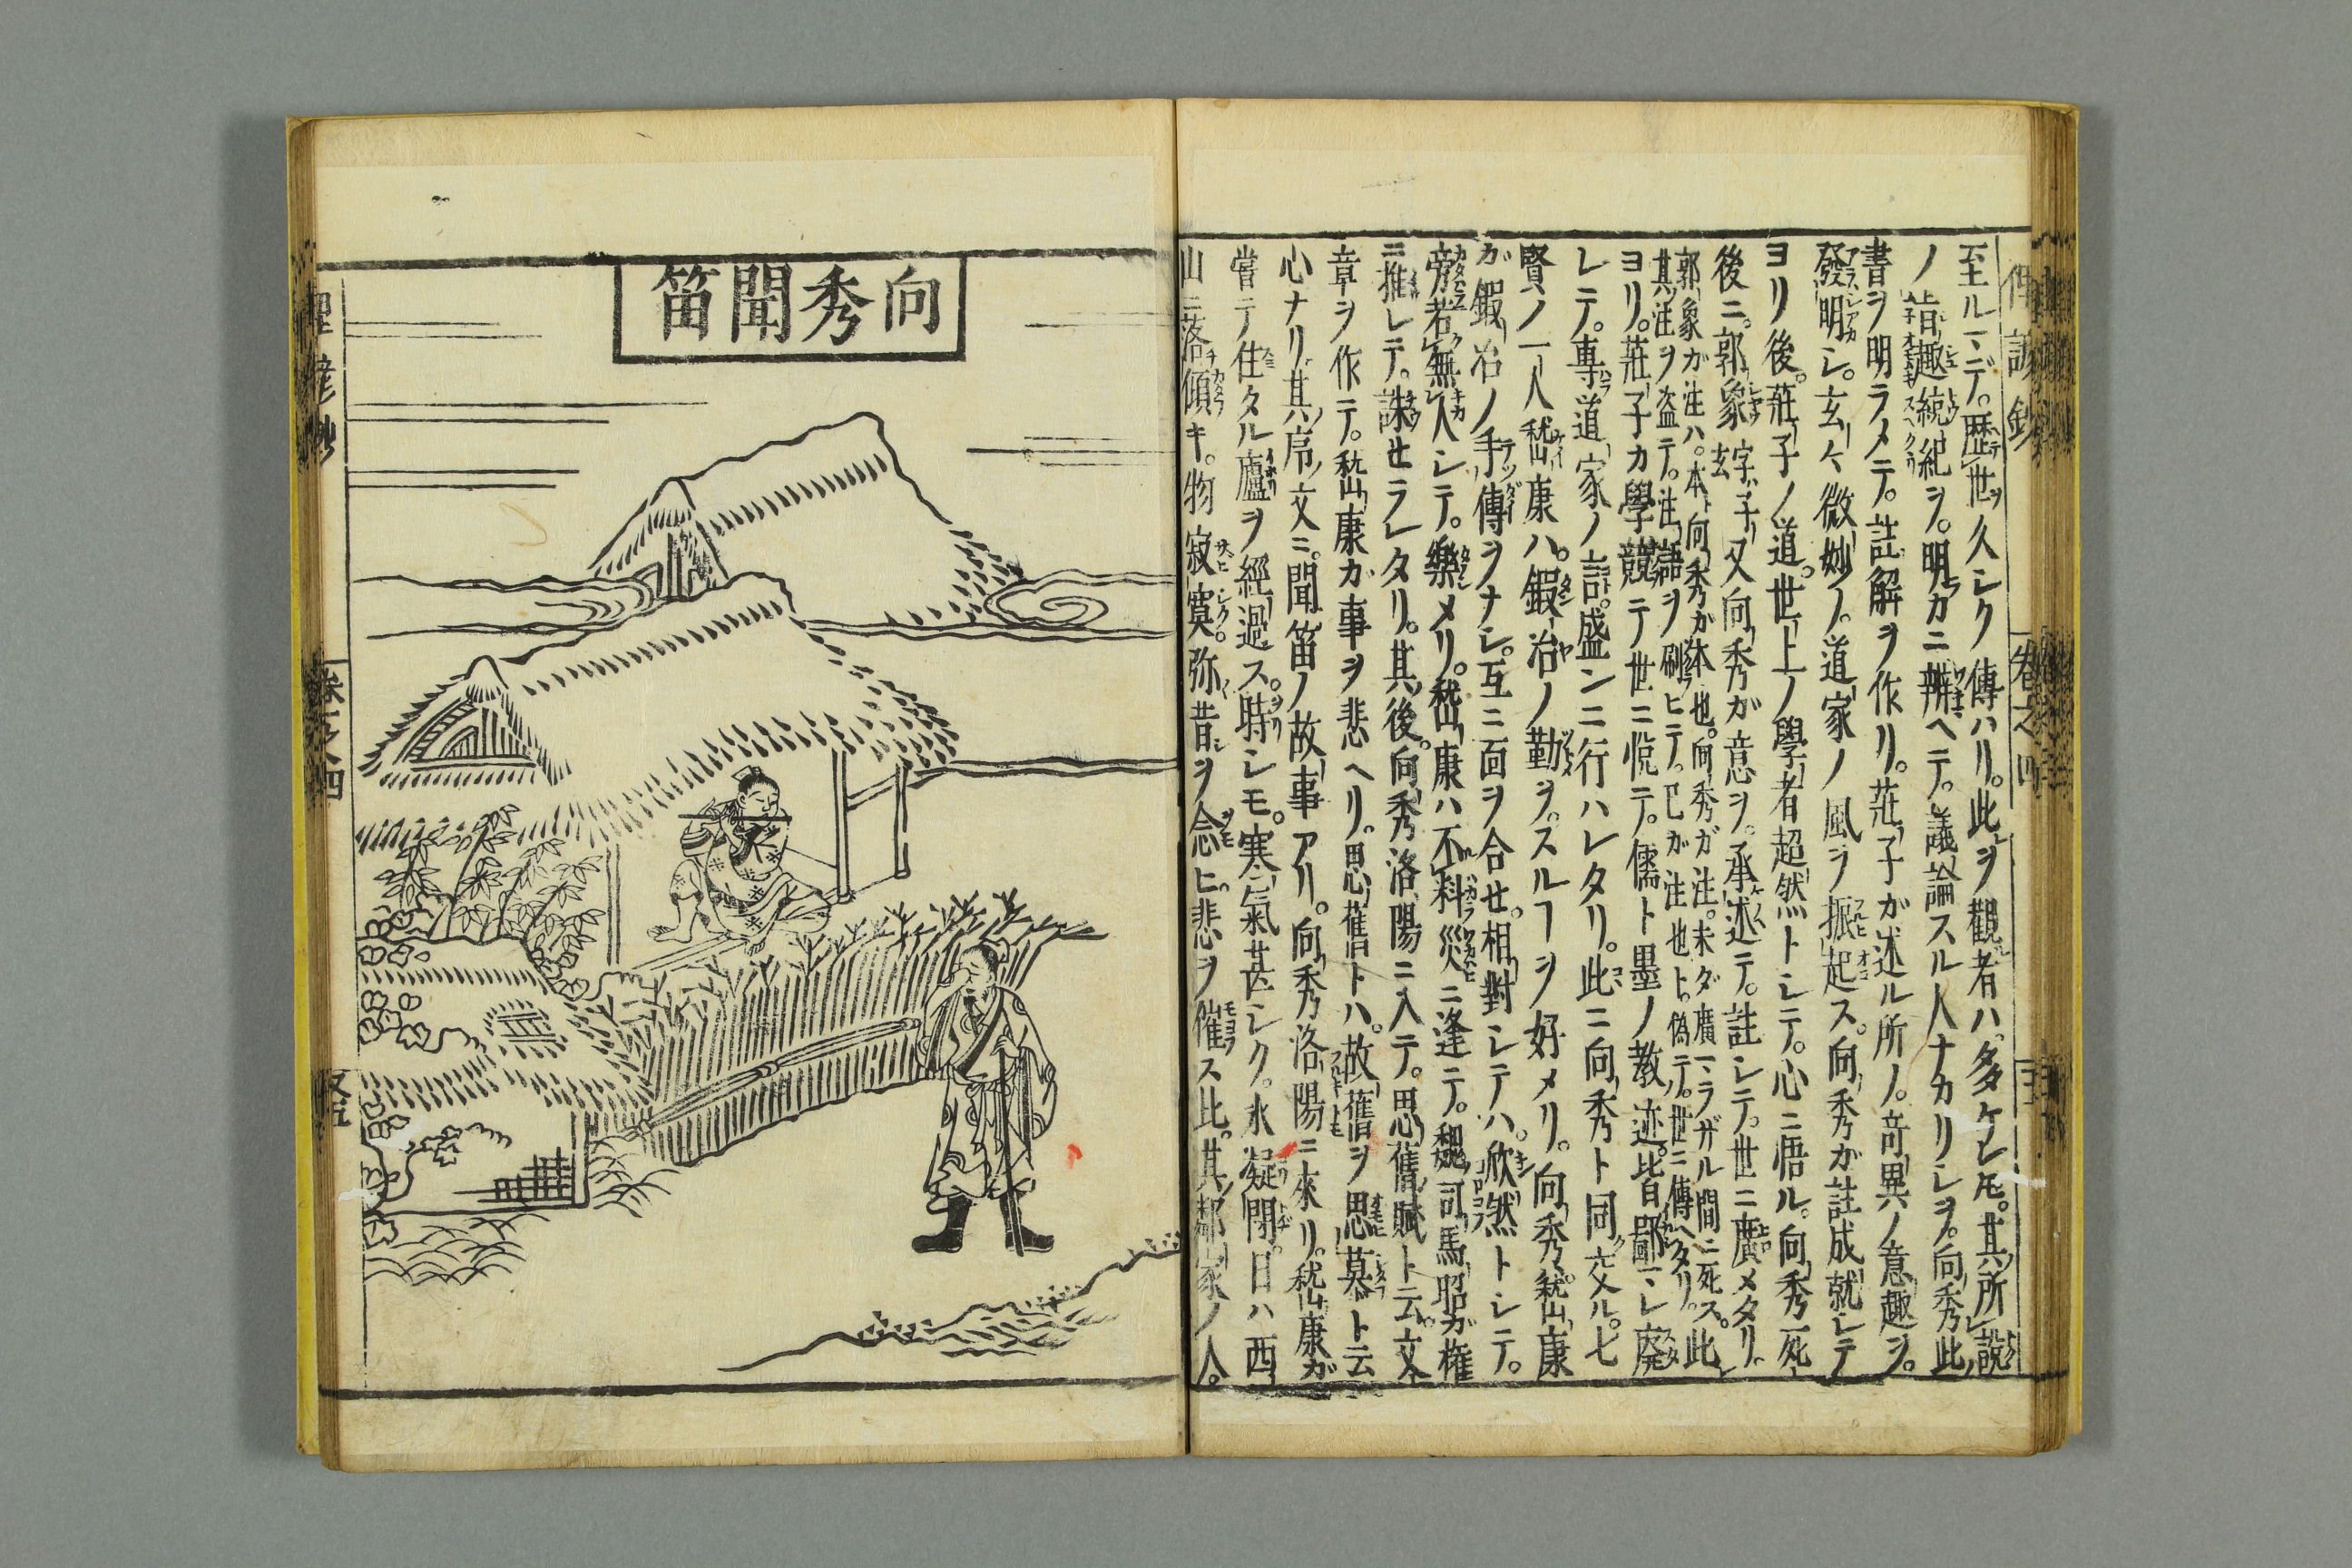 至ルマデ。歴世久シク傳ハリ。此ヲ觀者ハ。多ケレ𪜈。其所説
ノ旨趣綂紀ヲ。明カニ辨ヘテ。議論スル人ナカリシヲ。向秀此
書ヲ明ラメテ。註解ヲ作リ。莊子ガ述ル所ノ。奇異ノ意趣ヲ。
發明シ。玄々微妙ノ。道家ノ風ヲ振起ス。向秀が註成就シテ
ヨリ後。莊子ノ道。世上ノ學者超然トシテ。心ニ悟ル。向秀死
後ニ。郭象字子玄又向秀ガ意ヲ。承述テ。註シテ。世ニ廣メタリ。
郭象ガ注ハ。本ト向秀ガ体也。向秀ガ注。未ダ廣マラザル間ニ死ス。此
其注ヲ盗テ。注語ヲ刷ヒテ。已ガ注也ト。偽テ。世ニ傳ヘタリ。
ヨリ。莊子カ學競テ世ニ悦テ。儒ト墨ノ教迹。皆鄙マレ廃
レテ。専道家ノ言。盛ンニ行ハレタリ。此ニ向秀ト同交ル。七
賢ノ一人嵆康ハ。鍜冶ノ勤ヲ。スルヿヲ好メリ。向秀嵆康
ガ鍜冶ノ手傳ヲナシ。互ニ面ヲ合セ。相對シテハ。欣然トシテ。
旁若無人シテ。樂メリ。嵆康ハ不料災ニ逢テ。魏司馬昭ガ権
ニ推レテ。誅セラレタリ。其後。向秀洛陽ニ入テ。思舊賦ト云。文
章ヲ作テ。嵆康ガ事ヲ悲ヘリ。思舊トハ。故舊ヲ思慕ト云
心ナリ。其序ノ文ニ。聞笛ノ故事アリ。向秀洛陽ニ來リ。嵆康ガ
嘗テ住タル廬ヲ經過ス。時シモ。寒氣甚シク。氷凝閉。日ハ西
山ニ落傾キ。物寂寞。弥昔ヲ念ヒ。悲ヲ催ス此。其鄰家ノ人。
卷之四
向秀聞笛
卷之四